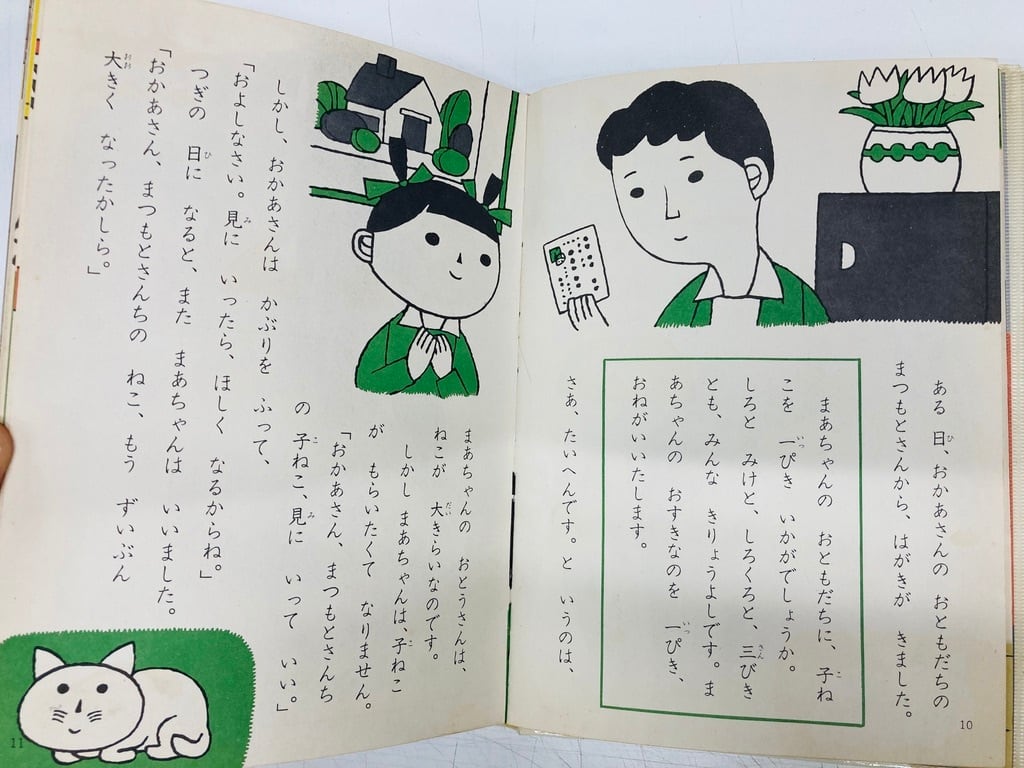 ある 日、おかあさんの おともだちの
まつもとさんから、はがきが きました。
まあちゃんの おともだちに、子ね
こを 一ぴき いかがでしょうか。
しろと みけと、しろくろと、三びき
とも、みんな きりょうよしです。ま
あちゃんの おすきなのを 一ぴき、
おねがいいたします。
さあ、たいへんです。と いうのは、
10
まあちゃんの おとうさんは、
ねこが 大きらいなのです。
しかし まあちゃんは、子ねこ
が もらいたくて なりません。
「おかあさん、まつもとさんち
の 子ねこ、見に いって いい。」
しかし、おかあさんは かぶりを ふって、
「およしなさい。見に いったら、ほしく なるからね。」
つぎの 日に なると、また まあちゃんは いいました。
「おかあさん、まつもとさんちの ねこ、もう ずいぶん
大きく なったかしら。」
11